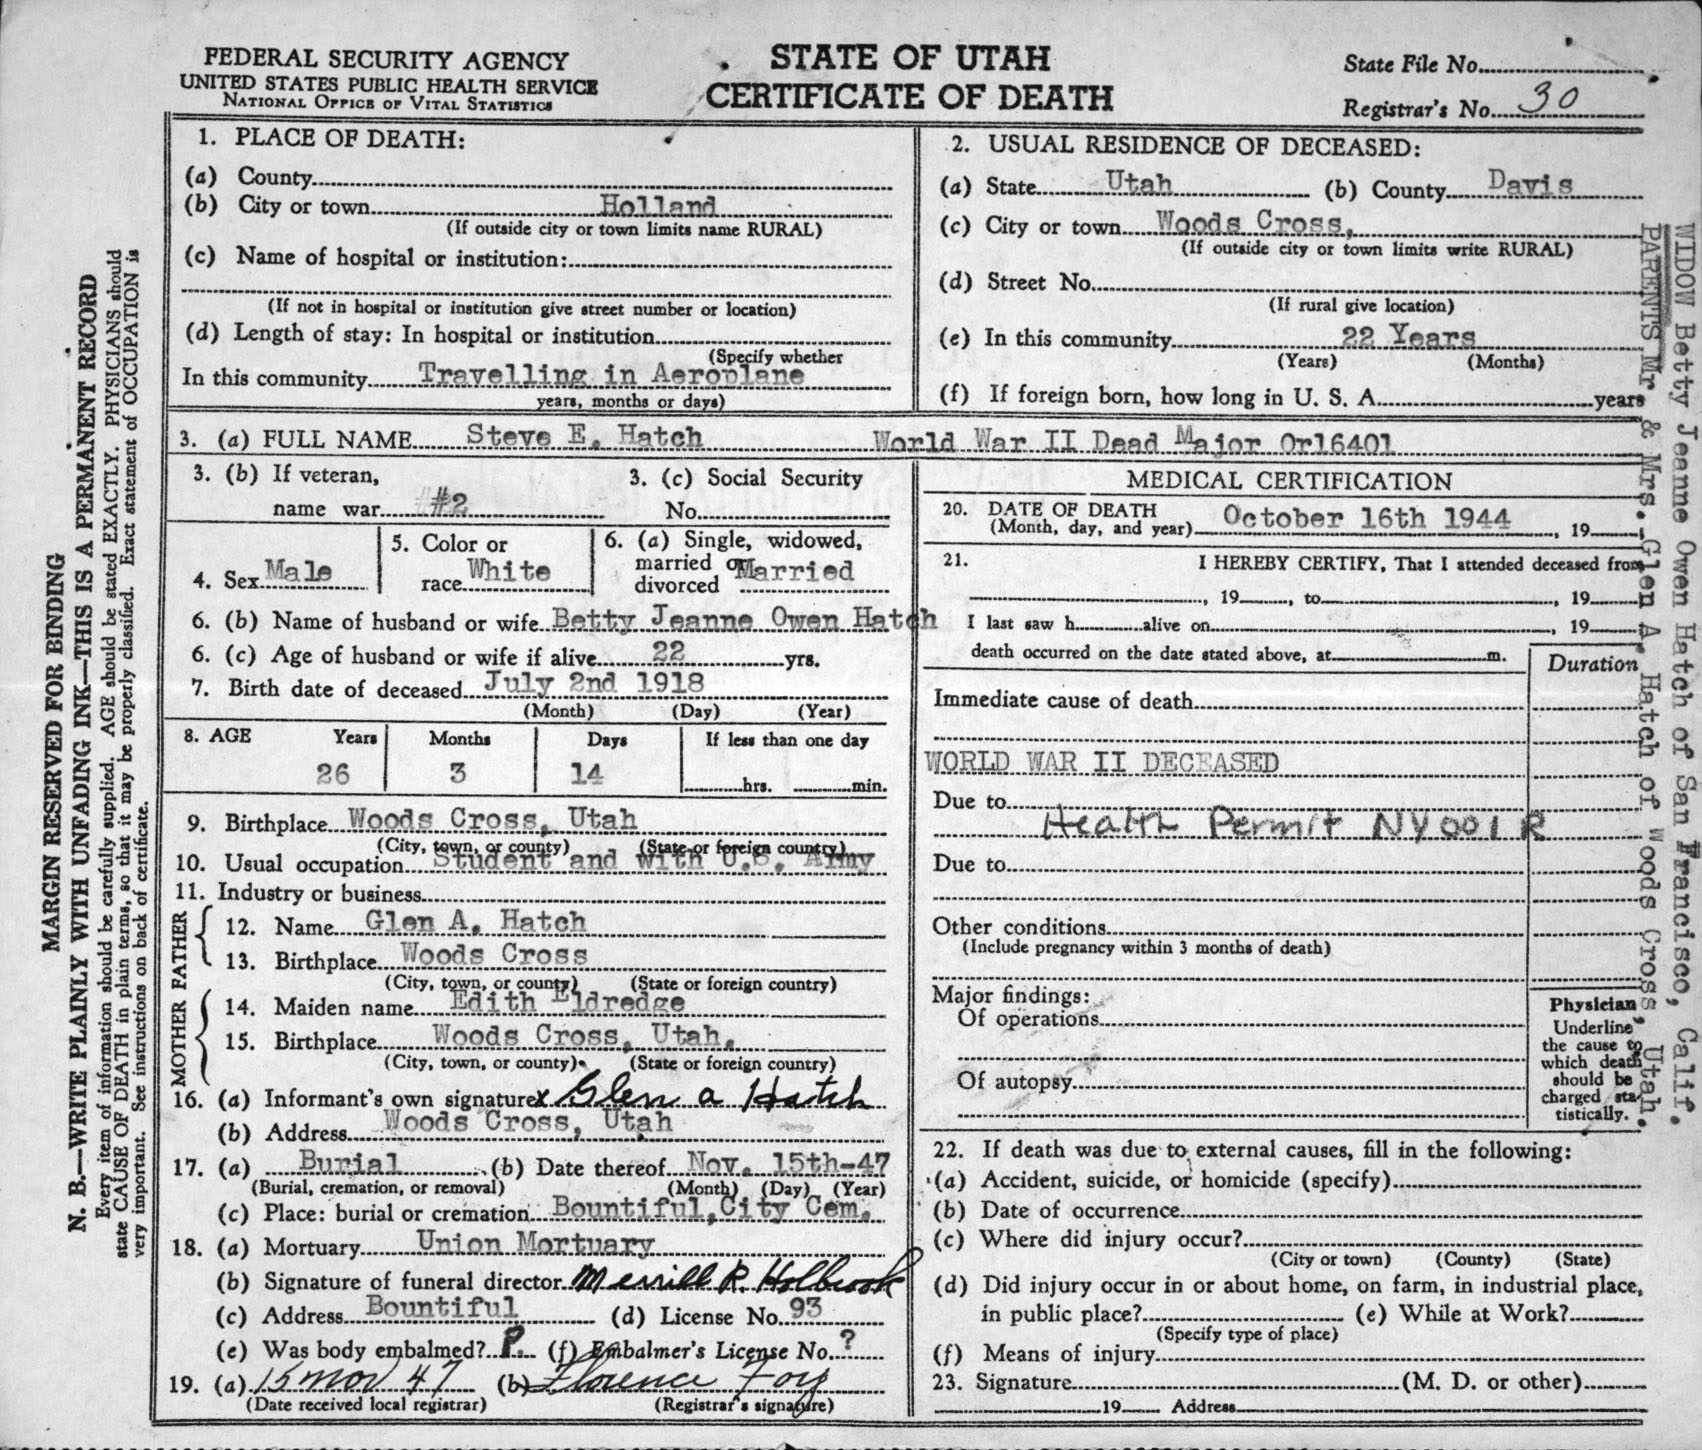 FEDERAL SECURITY AGENCY
UNITED STATES PUBLIC HEALTH SERVICE
NATIONAL OFFICE OF VITAL STATISTICS
STATE OF UTAH
CERTIFICATE OF DEATH
State File No.
Registrar's No. 30
1. PLACE OF DEATH:
(a) County
(b) City or town Holland
(If outside city or town limits name RURAL)
(c) Name of hospital or institution:
(If not in hospital or institution give street number or location)
(d) Length of stay: In hospital or institution
(Specify whether
In this community Travelling in Aeroplane
years, months or days)
2. USUAL RESIDENCE OF DECEASED:
(a) State Utah (b) County Davis
(c) City or town Woods Cross,
(If outside city or town limits write RURAL)
(d) Street No.
(If rural give location)
(e) In this community 22 Years
(Years) (Months)
(f) If foreign born, how long in U. S. A. years
3. (a) FULL NAME Steve E. Hatch World War II Dead Major Or16401
3. (b) If veteran,
name war #2
3. (c) Social Security
No.
4. Sex Male
5. Color or
race White
6. (a) Single, widowed,
married or
divorced Married
6. (b) Name of husband or wife Betty Jeanne Owen Hatch
6. (c) Age of husband or wife if alive 22 yrs.
7. Birth date of deceased July 2nd 1918
(Month) (Day) (Year)
8. AGE Years Months Days If less than one day
26 3 14 hrs. min.
9. Birthplace Woods Cross, Utah
(City, town, or county) (State or foreign country)
10. Usual occupation Student and with U.S. Army
11. Industry or business
FATHER
12. Name Glen A. Hatch
13. Birthplace Woods Cross
(City, town, or county) (State or foreign country)
MOTHER
14. Maiden name Edith Eldredge
15. Birthplace Woods Cross, Utah.
(City, town, or county) (State or foreign country)
16. (a) Informant's own signature x Glen a Hatch
(b) Address Woods Cross, Utah
17. (a) Burial (b) Date thereof Nov. 15th-47
(Burial, cremation, or removal) (Month) (Day) (Year)
(c) Place: burial or cremation Bountiful,City Cem.
18. (a) Mortuary Union Mortuary
(b) Signature of funeral director Merrill R. Holbrook
(c) Address Bountiful (d) License No. 93
(e) Was body embalmed? ?. (f) Embalmer's License No. ?
19. (a) 15 Nov 47 (b) Florence Foy
(Date received local registrar) (Registrar's signature)
MEDICAL CERTIFICATION
20. DATE OF DEATH
(Month, day, and year) October 16th 1944, 19
21. I HEREBY CERTIFY, That I attended deceased from
, 19 , to , 19
I last saw h alive on , 19
death occurred on the date stated above, at m.
Duration
Immediate cause of death
WORLD WAR II DECEASED
Due to
Health Permit NY001R
Due to
Other conditions
(Include pregnancy within 3 months of death)
Major findings:
Of operations
Of autopsy
Physician
Underline
the cause to
which death
should be
charged sta-
tistically.
22. If death was due to external causes, fill in the following:
(a) Accident, suicide, or homicide (specify)
(b) Date of occurrence
(c) Where did injury occur?
(City or town) (County) (State)
(d) Did injury occur in or about home, on farm, in industrial place,
in public place? (e) While at Work?
(Specify type of place)
(f) Means of injury
23. Signature (M. D. or other)
19 Address
MARGIN RESERVED FOR BINDING
N. B.—WRITE PLAINLY WITH UNFADING INK—THIS IS A PERMANENT RECORD
Every item of information should be carefully supplied. AGE should be stated EXACTLY. PHYSICIANS should
state CAUSE OF DEATH in plain terms, so that it may be properly classified. Exact statement of OCCUPATION is
very important. See instructions on back of certificate.
WIDOW Betty Jeanne Owen Hatch of San Francisco, Calif.
PARENTS Mr & Mrs. Glen A. Hatch of Woods Cross, Utah.